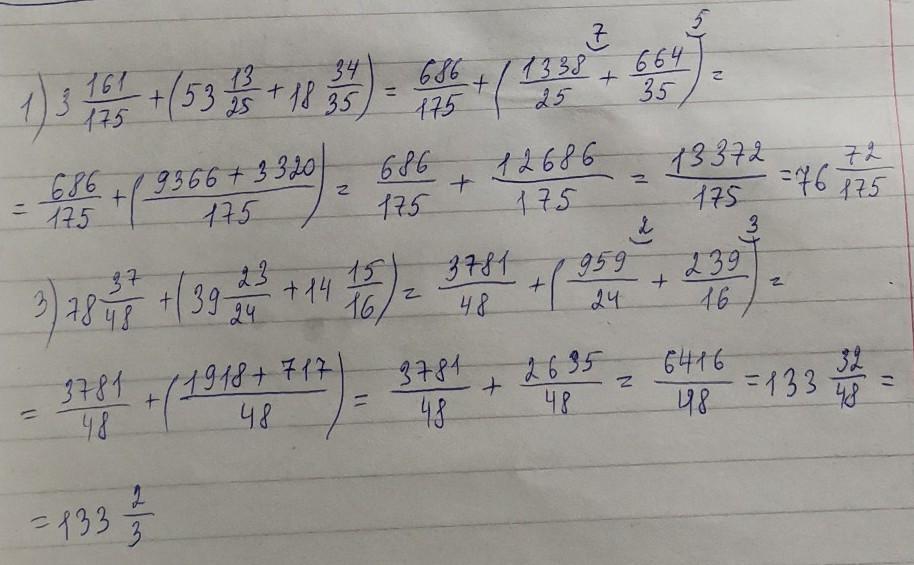 1) 3 161/175 + (53 13/25 + 18 34/35) = 686/175 + (1338/25 ⁷ + 664/35 ⁵) =
= 686/175 + ((9366 + 3320)/175) = 686/175 + 12686/175 = 13372/175 = 76 72/175
3) 78 37/48 + (39 23/24 + 14 15/16) = 3781/48 + (959/24 ² + 239/16 ³) =
= 3781/48 + ((1918 + 717)/48) = 3781/48 + 2635/48 = 6416/48 = 133 32/48 =
= 133 2/3